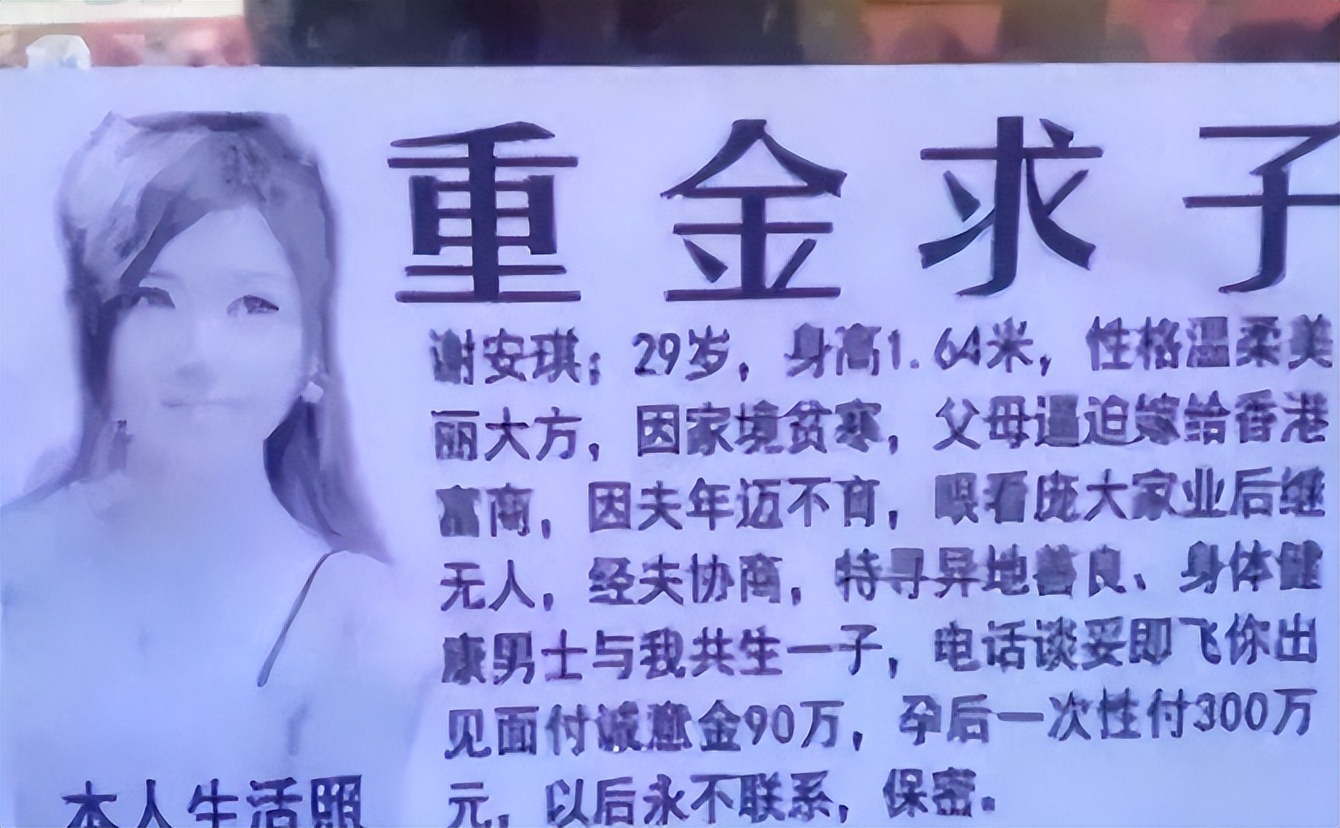 重金求子
谢安琪；29岁，身高1.64米，性格温柔美
丽大方，因家境贫寒，父母逼迫嫁给香港
富商，因夫年迈不育，眼看庞大家业后继
无人，经夫协商，特寻异地善良、身体健
康男士与我共生一子，电话谈妥即飞你出
见面付诚意金90万，孕后一次性付300万
元，以后永不联系，保密。
本人生活照